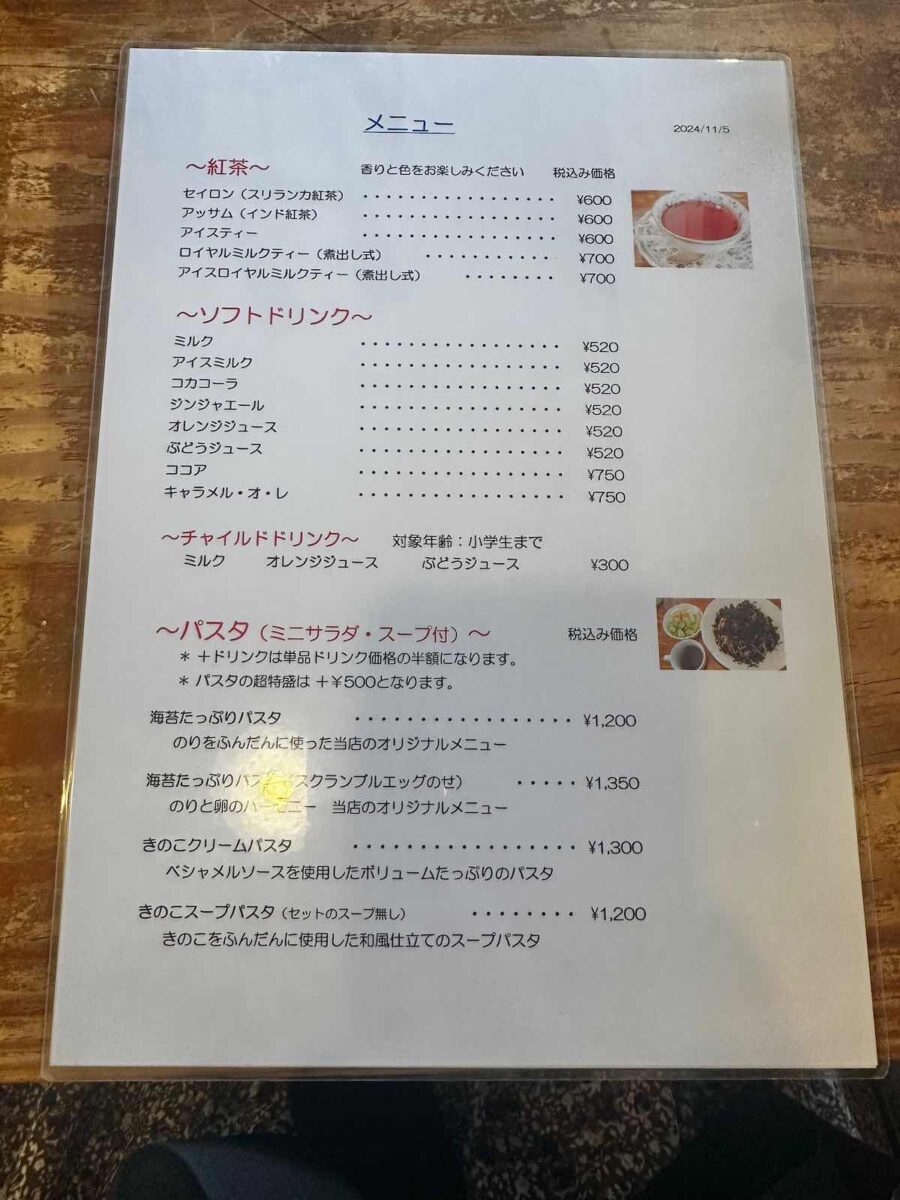 メニュー
2024/11/5
～紅茶～ 香りと色をお楽しみください 税込み価格
セイロン（スリランカ紅茶） ・・・・・・・・・・・・・・・・・・ ¥600
アッサム（インド紅茶） ・・・・・・・・・・・・・・・・・・ ¥600
アイスティー ・・・・・・・・・・・・・・・・・・ ¥600
ロイヤルミルクティー（煮出し式） ・・・・・・・・・・・・ ¥700
アイスロイヤルミルクティー（煮出し式） ・・・・・・・・ ¥700
～ソフトドリンク～
ミルク ・・・・・・・・・・・・・・・・・・ ¥520
アイスミルク ・・・・・・・・・・・・・・・・・・ ¥520
コカコーラ ・・・・・・・・・・・・・・・・・・ ¥520
ジンジャエール ・・・・・・・・・・・・・・・・・・ ¥520
オレンジジュース ・・・・・・・・・・・・・・・・・・ ¥520
ぶどうジュース ・・・・・・・・・・・・・・・・・・ ¥520
ココア ・・・・・・・・・・・・・・・・・・ ¥750
キャラメル・オ・レ ・・・・・・・・・・・・・・・・・・ ¥750
～チャイルドドリンク～ 対象年齢：小学生まで
ミルク オレンジジュース ぶどうジュース ¥300
～パスタ（ミニサラダ・スープ付）～ 税込み価格
＊ ＋ドリンクは単品ドリンク価格の半額になります。
＊ パスタの超特盛は ＋¥500となります。
海苔たっぷりパスタ ・・・・・・・・・・・・・・・・・・ ¥1,200
のりをふんだんに使った当店のオリジナルメニュー
海苔たっぷりパスタ（スクランブルエッグのせ） ・・・・・ ¥1,350
のりと卵のハーモニー 当店のオリジナルメニュー
きのこクリームパスタ ・・・・・・・・・・・・・・・・・・ ¥1,300
ベシャメルソースを使用したボリュームたっぷりのパスタ
きのこスープパスタ（セットのスープ無し） ・・・・・・・・ ¥1,200
きのこをふんだんに使用した和風仕立てのスープパスタ